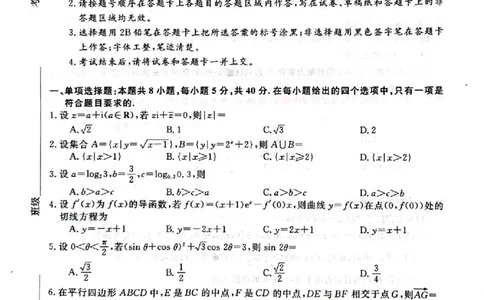 2.请按题号顺序在答题卡上各题目的答题区域内作答,写在试卷、草稿纸和答题卡上的非
答题区域均无效。
3.选择题用2B铅笔在答题卡上把所选答案的标号涂黑;非选择题用黑色签字笔在答题卡
上作答;字体工整,笔迹清楚。
4.考试结束后,请将试卷和答题卡一并上交。
一、单项选择题:本题共8小题,每小题5分,共40分.在每小题给出的四个选项中,只有一项是
符合题目要求的.
1.设z=a+i(a∈R),若zi+z̄=0,则|z|=
A.√2 B.1 C.√3 D.2
2.设集合A={x|y=√(x-1)},B={y|y=2ˣ+2},则A∪B=
A.{x|x>1} B.{x|x≥1} C.{x|x≥2} D.{x|x>2}
3.设a=log₂3,b=3/2,c=log₀.₂0.3,则
A.b>a>c B.b>c>a C.a>b>c D.a>c>b
4.设f′(x)为f(x)的导函数,若f(x)=(x+1)eˣ-f′(0)x,则曲线y=f(x)在点(0,f(0))处的
切线方程为
A.y=-x+1 B.y=-2x+1 C.y=2x+1 D.y=x+1
5.设0<θ<π/2,若(sin θ+cos θ)²+√3cos 2θ=3,则sin 2θ=
A.√3/2 B.1/2 C.√2/2 D.3/4
6.在平行四边形ABCD中,E是BC的中点,F是CD的中点,DE与BF相交于点G,则AG=
班级